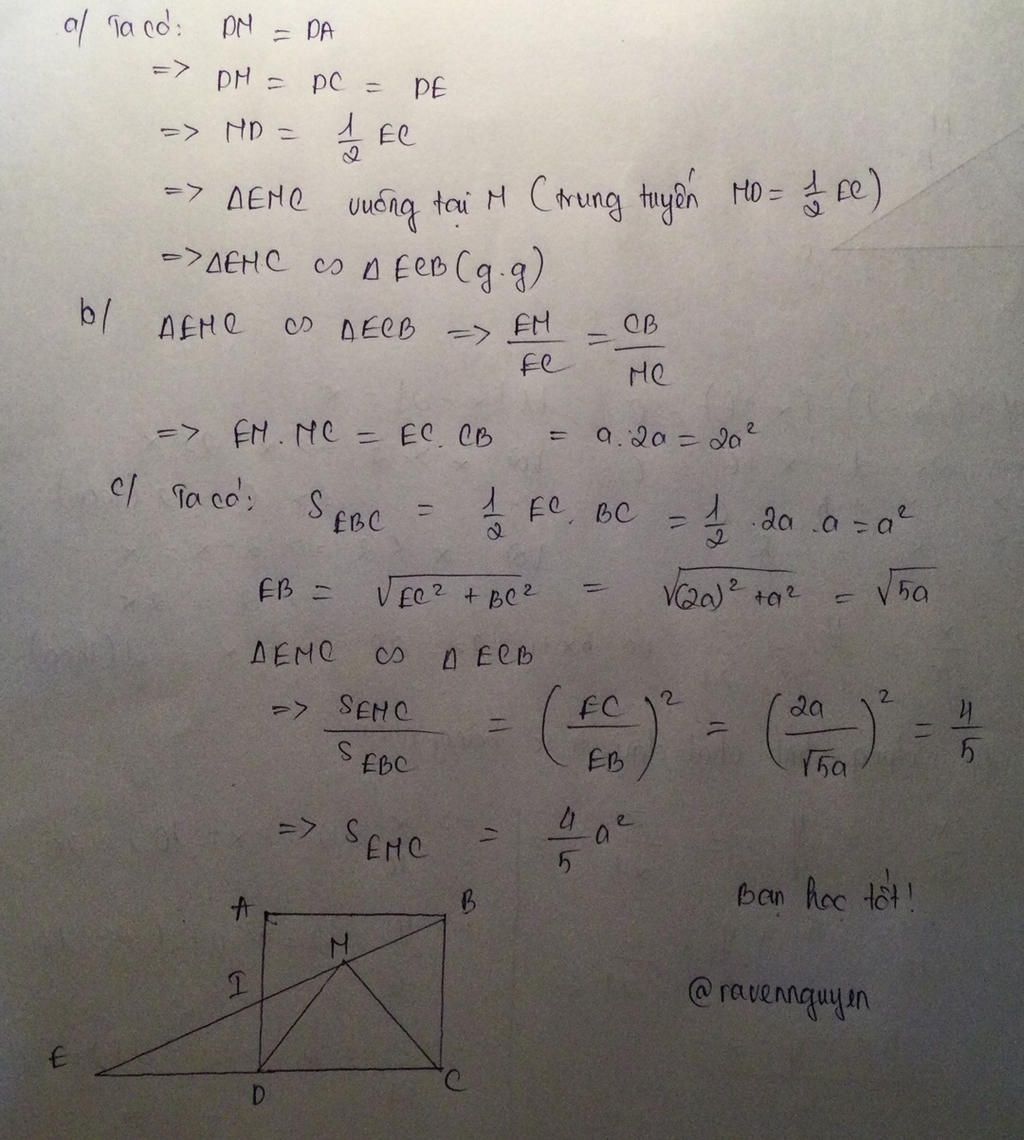 a/ Ta có: DM = DA
=> DM = DC = DE
=> MD = 1/2 EC
=> ΔEMC vuông tại M (trung tuyến MD = 1/2 EC)
=> ΔEMC ∽ ΔECB (g.g)
b/ ΔEMC ∽ ΔECB => EM/EC = CB/MC
=> EM . MC = EC . CB = a . 2a = 2a²
c/ Ta có: S_EBC = 1/2 EC . BC = 1/2 . 2a . a = a²
EB = √(EC² + BC²) = √((2a)² + a²) = √5a
ΔEMC ∽ ΔECB
=> S_EMC/S_EBC = (EC/EB)² = (2a/√5a)² = 4/5
=> S_EMC = 4/5 a²
Bạn học tốt!
@ravennguyen
A B
M
I
E
D C